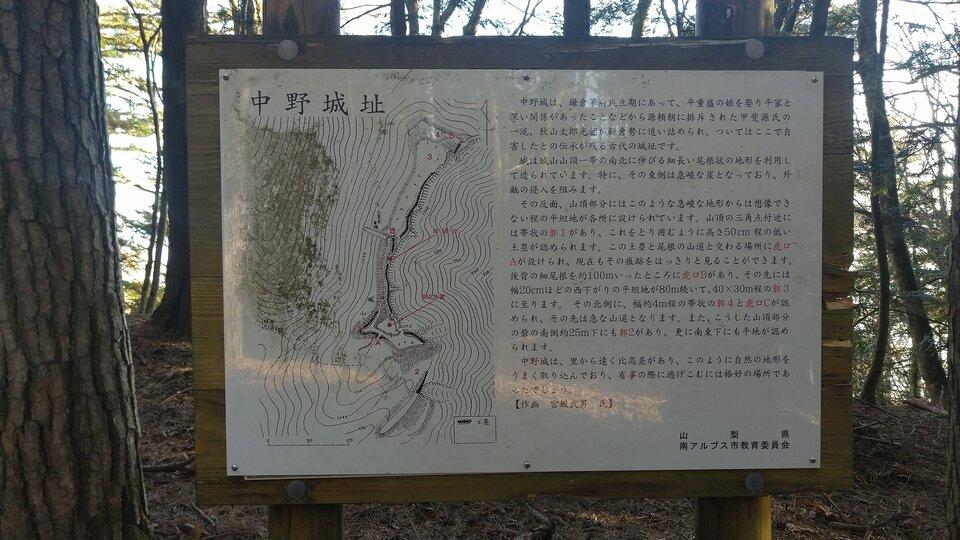 中野城址
中野城は、鎌倉幕府成立期にあって、平重盛の娘を娶り平家と
深い関係があったことなどから源頼朝に排斥された甲斐源氏の
一流、秋山太郎光朝が鎌倉勢に追い詰められ、ついてはここで自
害したとの伝承が残る古代の城址です。
城は城山山頂一帯の南北に伸びる細長い尾根状の地形を利用し
て造られています。特に、その東側は急峻な崖となっており、外
敵の侵入を阻みます。
その反面、山頂部分にはこのような急峻な地形からは想像でき
ない程の平坦地が各所に設けられています。山頂の三角点付近に
は帯状の郭1があり、これをとり囲むように高さ50cm程の低い
土塁が認められます。この土塁と尾根の山道と交わる場所に虎口
Aが設けられ、現在もその痕跡をはっきりと見ることができます。
後背の細尾根を約100mいったところに虎口Bがあり、その先には
幅20cmほどの西下がりの平坦地が80m続いて、40×30m程の郭3
に至ります。 その北側に、幅約4m程の帯状の郭4と虎口Cが認
められ、その先は急な山道となります。また、こうした山頂部分
の砦の南側約25m下にも郭2があり、更に南東下にも平地が認め
られます。
中野城は、里から遠く比高差があり、このように自然の地形を
うまく取り込んでおり、有事の際に逃げこむには格好の場所であ
ったでしょう。
【作画 宮坂武男 氏】
山梨県
南アルプス市教育委員会
4
C
3
B
1
A
2
土塁
0 50 100